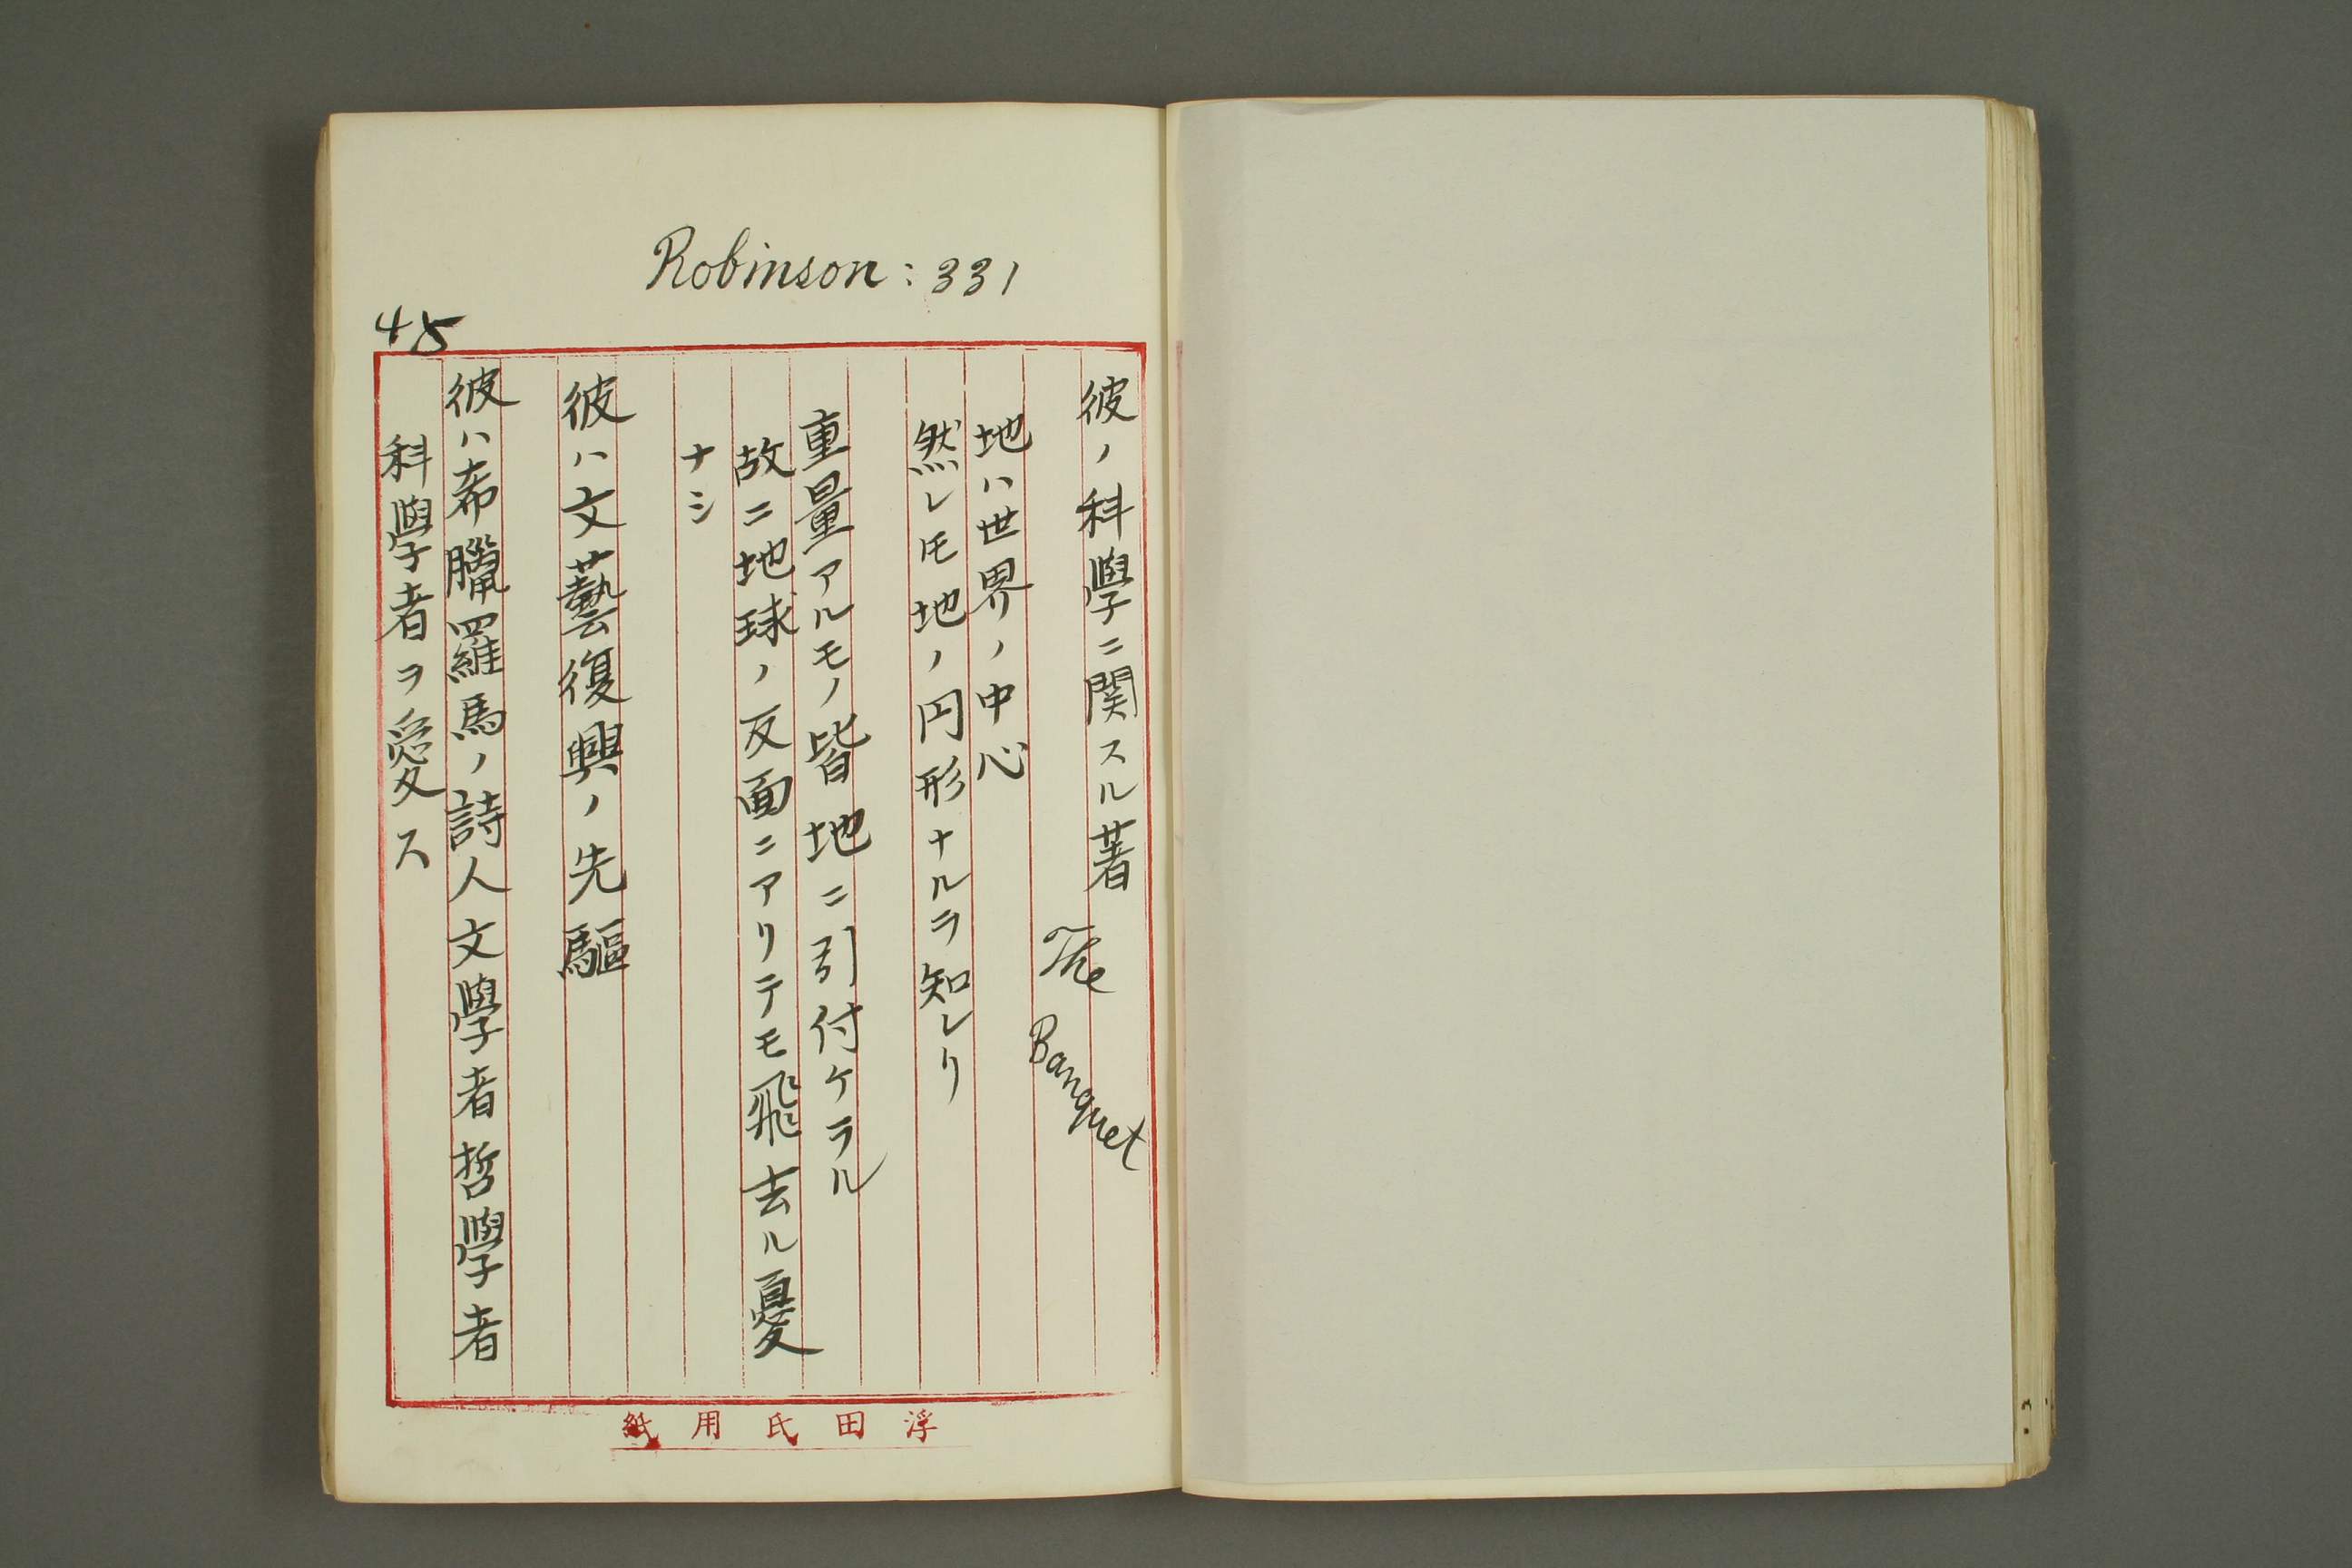 Robinson: 331
45
彼ノ科學ニ関スル著 The Banquet
地ハ世界ノ中心
然レ𪜈地ノ円形ナルヲ知レリ
重量アルモノ皆地ニ引付ケラル
故ニ地球ノ反面ニアリテモ飛去ル憂
ナシ
彼ハ文藝復興ノ先驅
彼ハ希臘羅馬ノ詩人文學者哲學者
科學者ヲ愛ス
浮田氏用紙